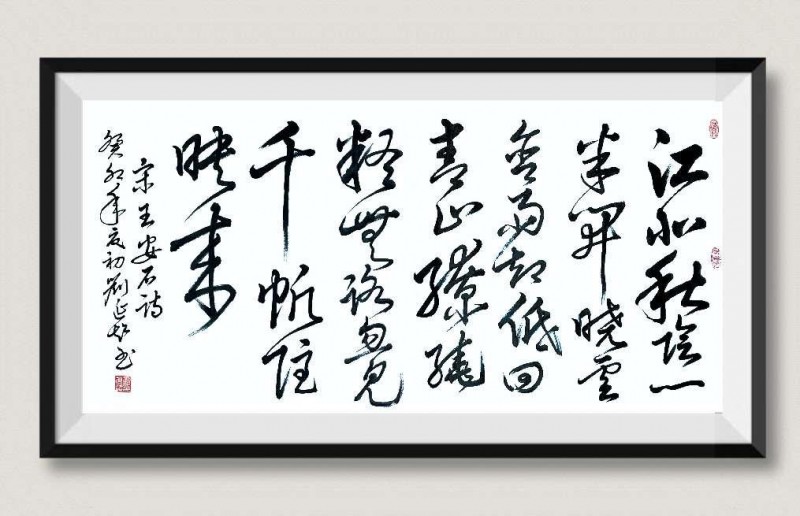 江北秋陰一
半開曉雲
含雨却低回
青山繚繞
疑無路忽見
千帆隱
映来
宋王安石詩
癸卯年夏初劉延超书